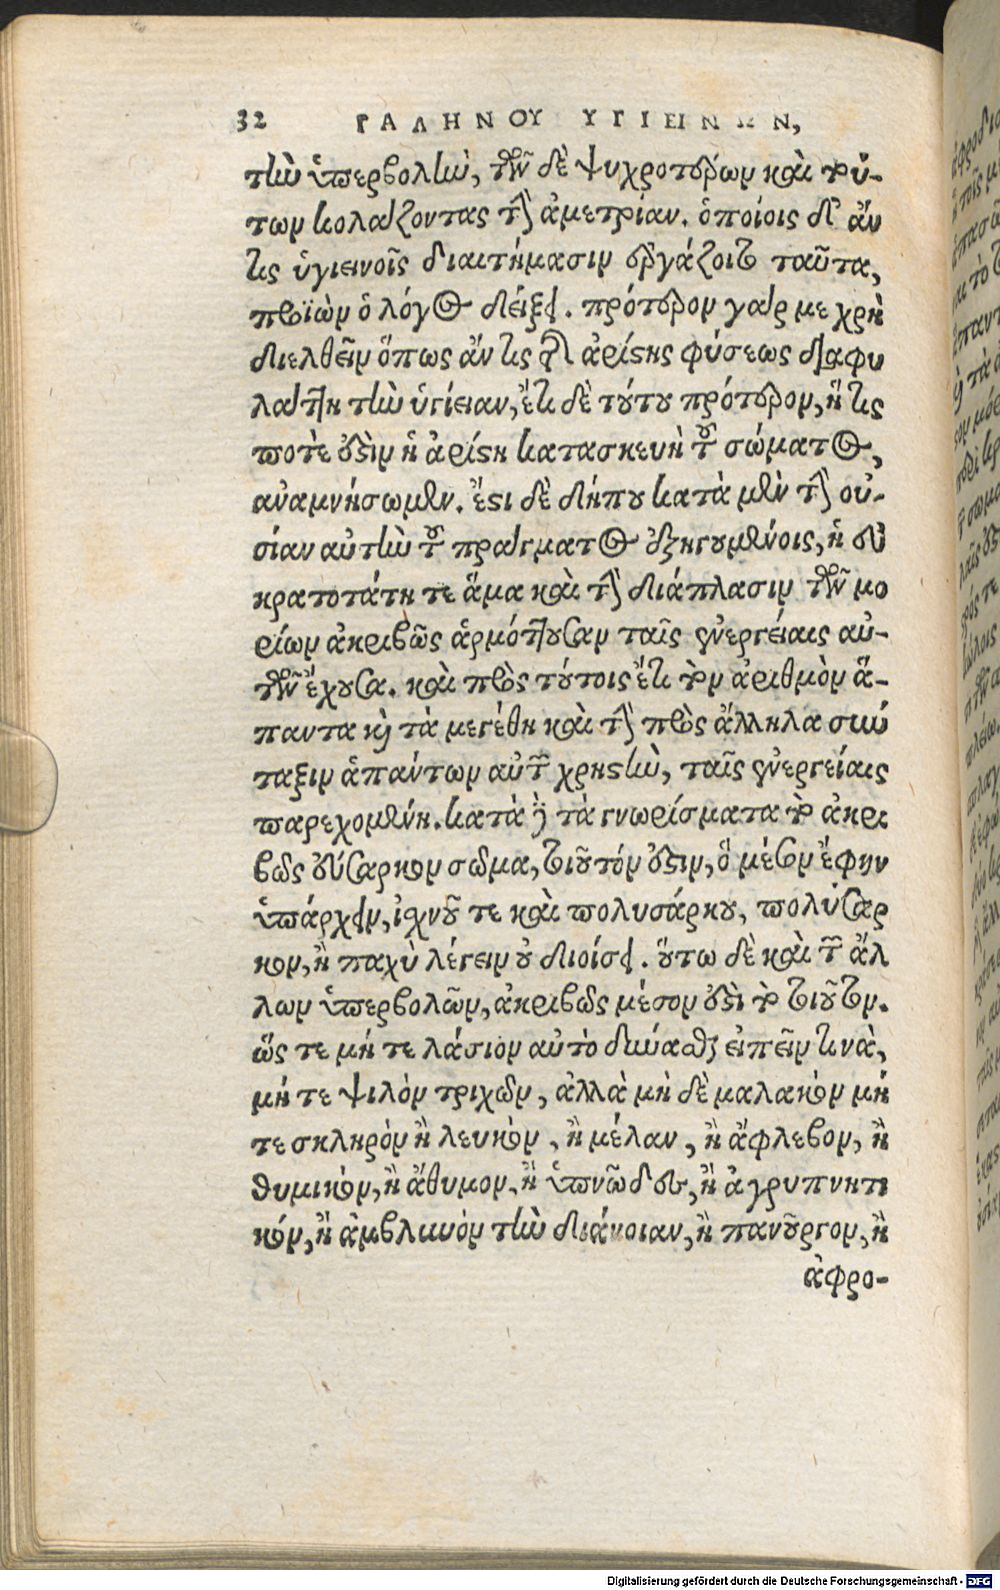 32 ΓΑΛΗΝΟΥ ΥΓΙΕΙΝΩΝ,
τὴν ὑπερβολὴν, τῶν δὲ ψυχροτέρων καὶ τού-
των κολάζοντας τὴν ἀμετρίαν. ὁποίοις δ' ἄν
τις ὑγιεινοῖς διαιτήμασιν ἐργάζοιτο ταῦτα,
προϊὼν ὁ λόγος δείξει. πρότερον γάρ με χρὴ
διελθεῖν ὅπως ἄν τις τῆς ἀρίστης φύσεως διαφυ
λάττῃ τὴν ὑγίειαν, ἔτι δὲ τούτου πρότερον, ἥ τις
ποτὲ ἐστὶν ἡ ἀρίστη κατασκευὴ τοῦ σώματος,
ἀναμνήσωμεν. ἔστι δὲ δήπου κατὰ μὲν τὴν οὐ-
σίαν αὐτὴν τοῦ πράγματος ἐξηγουμένοις, ἡ εὐ
κρατοτάτη τε ἅμα καὶ τὴν διάπλασιν τῶν μο
ρίων ἀκριβῶς ἁρμόττουσαν ταῖς ἐνεργείαις αὐ-
τῶν ἔχουσα. καὶ πρὸς τούτοις ἔτι τὸν ἀριθμὸν ἅ-
παντα καὶ τὰ μεγέθη καὶ τὴν πρὸς ἄλληλα σύν
ταξιν ἁπάντων αὐτῶν χρηστὴν, ταῖς ἐνεργείαις
παρεχομένη. κατὰ δὲ τὰ γνωρίσματα τὸ ἀκρι
βῶς εὔσαρκον σῶμα, τοιοῦτόν ἐστιν, ὃ μέσον ἔφην
ὑπάρχειν, ἰχνοῦ τε καὶ πολυσάρκου, πολύσαρ
κον, ἢ παχὺ λέγειν οὐ διοίσει. οὕτω δὲ καὶ τῶν ἄλ
λων ὑπερβολῶν, ἀκριβῶς μέσον ἐστὶ τὸ τοιοῦτον.
ὥς τε μή τε λάσιον αὐτὸ δύνασθαι εἰπεῖν τινὰ,
μή τε ψιλὸν τριχῶν, ἀλλὰ μὴ δὲ μαλακὸν μή
τε σκληρὸν ἢ λευκὸν, ἢ μέλαν, ἢ ἄφλεβον, ἢ
θυμικόν, ἢ ἄθυμον, ἢ ὑπνῶδες, ἢ ἀγρυπνητι
κόν, ἢ ἀμβλιυὸν τὴν διάνοιαν, ἢ πανοῦργον, ἢ
ἀφρο-
Digitalisierung gefördert durch die Deutsche Forschungsgemeinschaft - DFG